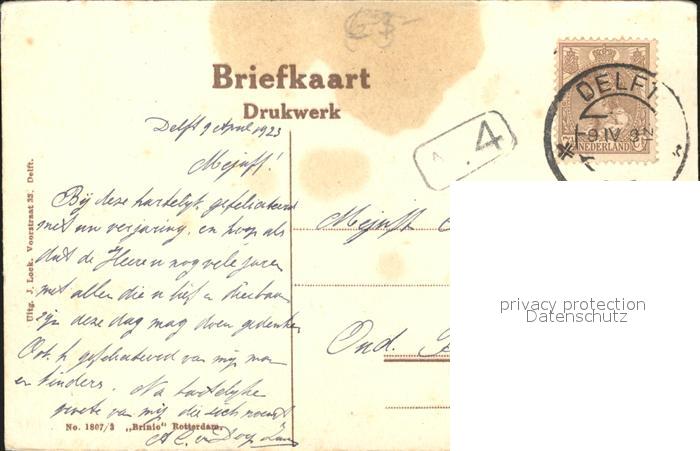 Briefkaart
Drukwerk
Delft 9 April 1923
Mejuff!
Bij deze hartelijk gefeliciteerd
met uw verjaring. en hoop als
dat de Heere u nog vele jaren
met allen die u lief en dierbaar
zijn deze dag mag doen gedenken
Ook h gefeliciteerd van mijn man
en kinders. Na hartelijke
groete van mij die zich noemt
No. 1807/3 „Brinio" Rotterdam.
Uitg. J. Lock. Voorstraat 33. Delft.
Mejuff
Oud.
A 4
DELFT
NEDERLAND
privacy protection
Datenschutz